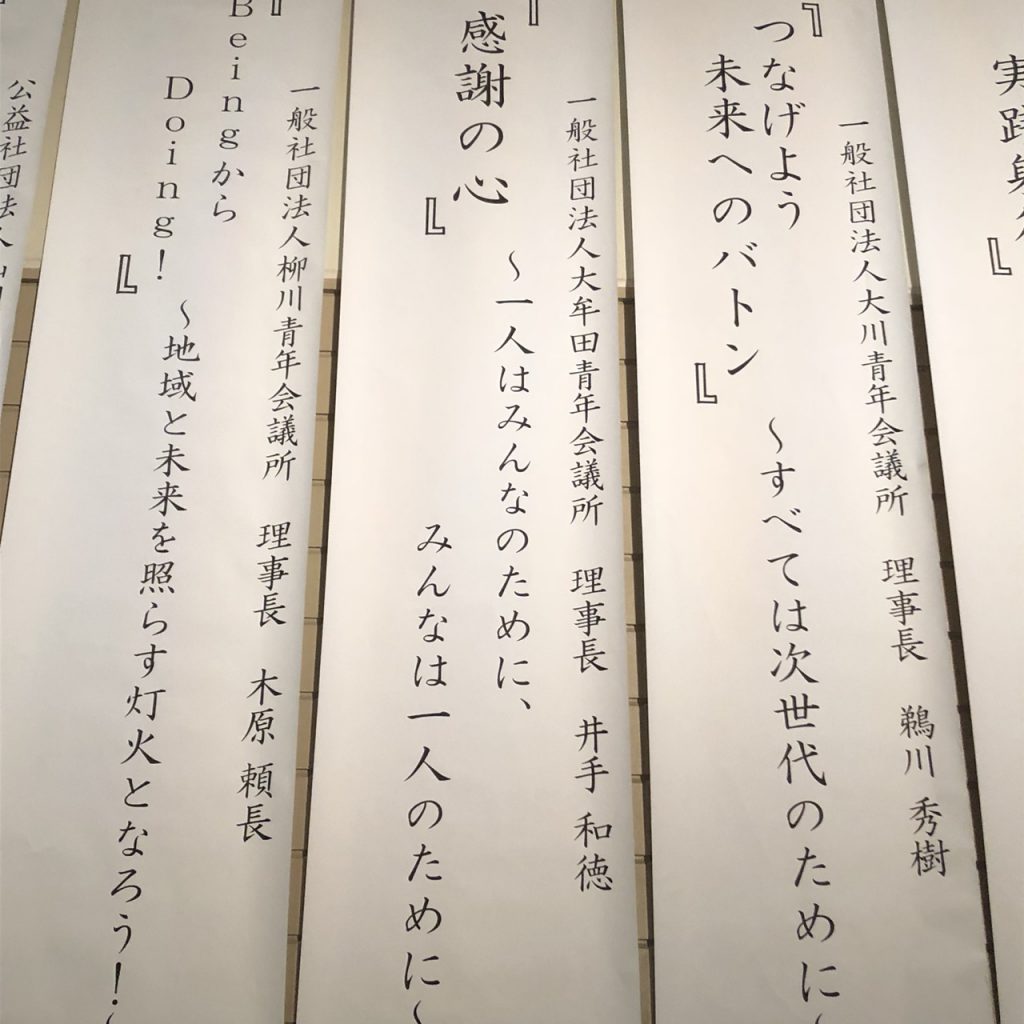 実践躬行
』
一般社団法人大川青年会議所　理事長　鵜川 秀樹
『つなげよう
未来へのバトン』
～すべては次世代のために～
一般社団法人大牟田青年会議所　理事長　井手 和徳
『感謝の心』
～一人はみんなのために、
みんなは一人のために～
一般社団法人柳川青年会議所　理事長　木原 頼長
『Beingから
Doing!』
～地域と未来を照らす灯火となろう！～
公益社団法人